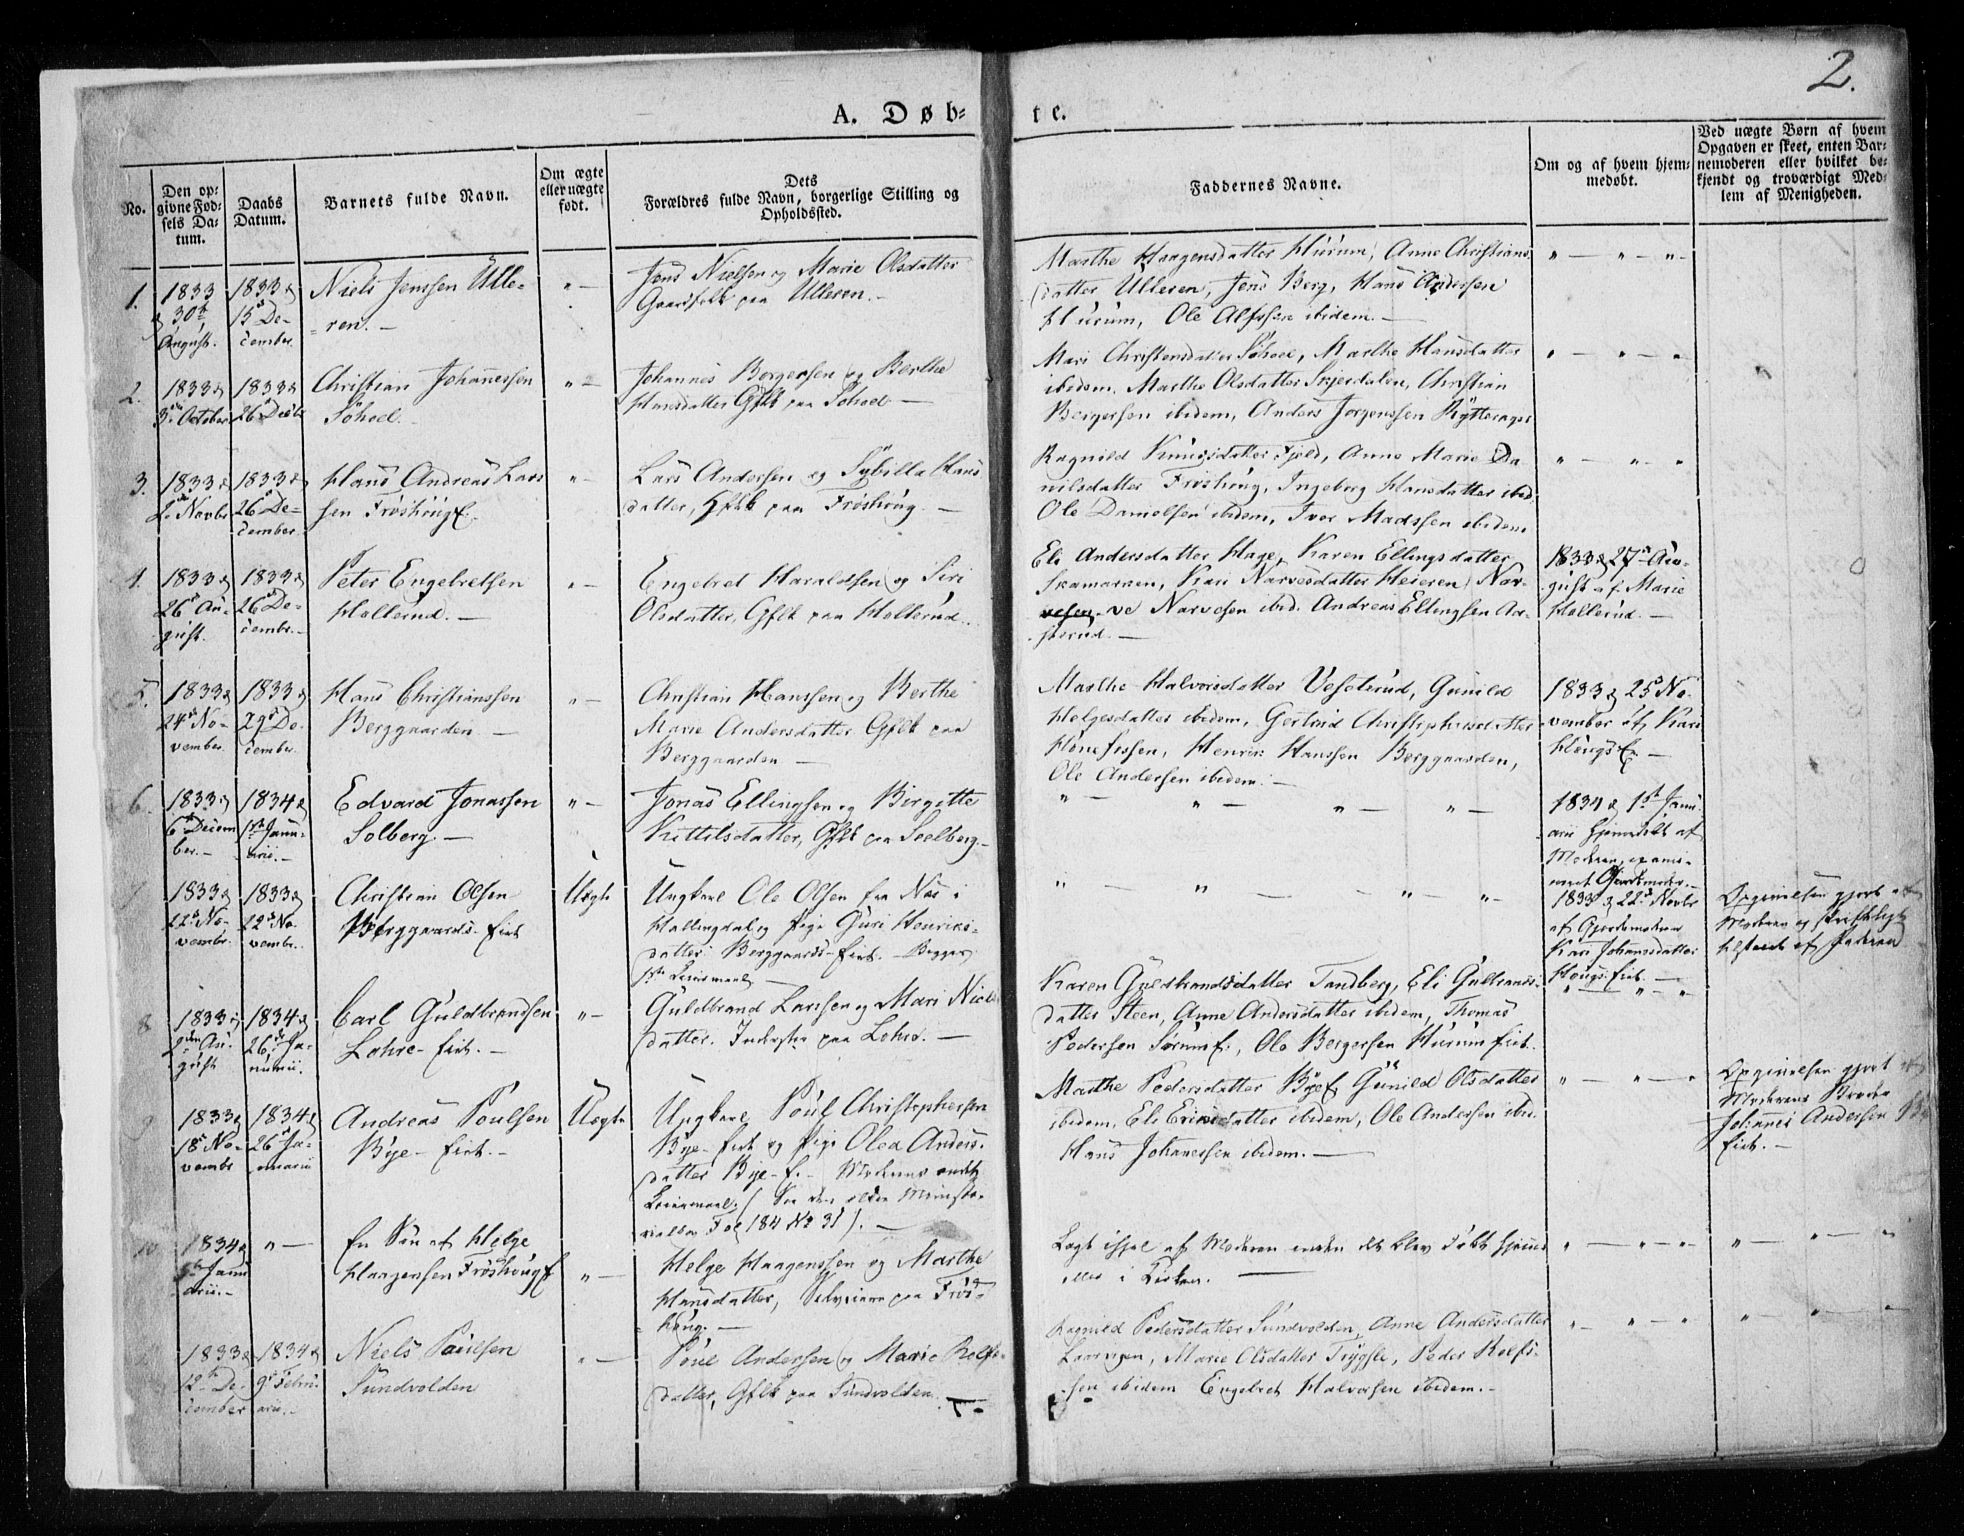 2.
A. Døb-
te.
No.
Den op-
givne Fød-
sels Da-
tum.
Daabs
Datum.
Barnets fulde Navn.
Om ægte
eller uægte
født.
Dets
Forældres fulde Navn, borgerlige Stilling og
Opholdssted.
Faddernes Navne.
Om og af hvem hjem-
medøbt.
Ved uægte Børn af hvem
Opgaven er skeet, enten Bar-
nemoderen eller hvilket be-
kjendt og troværdigt Med-
lem af Menigheden.
1.
1833
30te
August.
1833
15 De-
cember.
Niels Jenssen Ulle-
ren. -
Jens Nielsen og Marie Olsdatter
Gaardfolk paa Ulleren. -
Marthe Haagensdatter Hurum, Anne Christians
datter Ulleren, Jens Berg, Hans Andersen
Hurum, Ole Alfssen ibidem. -
2.
1833
3 October
1833
26 Decbr
Christian Johanessen
Søhoel. -
Johannes Borgersen og Berthe
Hansdatter Gflk paa Søhoel -
Mari Christensdatter Søhoel, Marthe Hansdatter
ibidem. Marthe Olsdatter Skjerdalen, Christian
Bergersen ibidem, Anders Jorgenssen Rytterager
3.
1833
2 Novbr
1833
26 De-
cember.
Hans Andreas Lars
sen Frøshougf.
Lars Andersen og Sybilla Hans
datter, Gflk paa Frøshoug. -
Ragnild Knudsdatter Fjeld, Anne Marie Da
nilsdatter Frøshoug, Ingeborg Hansdatter ibid
Ole Danielsen ibidem, Iver Madssen ibidem
4.
1833
26 Au-
gust.
1833
26 De-
cembr.
Peter Engebretsen
Hollerud. -
Engebret Haraldsen og Siri
Olsdatter, Gflk paa Hollerud.
Eli Andersdatter Hage, Karen Ellingsdatter
Skamarken, Kari Narvesdatter Heieren, Nar-
ve Narvesen ibid. Andreas Ellingsen Aa-
serud. -
1833 27 Au-
gust af Marie
Hollerud. -
5.
1833
24 No-
vember
1833
29 De-
cember.
Hans Christianssen
Berggaarden -
Christian Hanssen og Berthe
Marie Andersdatter Gflk paa
Berggaarden -
Marthe Halvorsdatter Veseterud, Gunild
Helgesdatter ibidem, Gertrud Christophersdatter
Hønefossen, Henrik Hanssen Berggaarden,
Ole Andersen ibidem. -
1833 25 No-
vember af Kari
Hougsf. -
6.
1833
6 Decem
ber. -
1834
1ste Janu-
arii. -
Edvard Jonassen
Solberg. -
Jonas Ellingsen og Birgitte
Kittilsdatter, Gflk paa Soelberg. -
1834 1ste Janu-
arii hjemdøbt af
Moderen, exami-
neret Gjordemoder. -
7
1833
22 No-
vembr.
1833
22 No-
vembr.
Christian Olsen
Berggaards-Eiet
Uægte
Ungkarl Ole Olsen fra Næs i
Hallingdal og Pige Guri Henriks-
datter Berggaards-Eiet. - Begges
1ste Leiermaal -
1833 22 Novbr
af Gjordemoderen
Kari Johanesdatter
Hougs-Eiet -
Opgivelsen gjort af
Moderen og skriftligt
tilstaaet af Faderen
8
1833
2den Au-
gust
1834
26 Ja-
nuarii.
Carl Guldbrandsen
Lohre-Eiet. -
Guldbrand Larssen og Mari Niels
datter. Inderster paa Lohre. -
Karen Guldbrandsdatter Tandberg, Eli Gulbrands-
datter Steen, Anne Andersdatter ibidem, Thomas
Pedersen Sørumf., Ole Bergersen Hurum Eiet.
9
1833
18 No-
vembr
1834
26 Ja-
nuarii
Andreas Poulsen
Bye-Eiet. -
Uægte
Ungkarl Poul Christophersen
Bye-Eiet og Pige Olea Anders-
datter Bye-f. - Moderens andet
Leiermaal. (See den ældre Ministe-
rialbog Fol 184 No 31). -
Marthe Pedersdatter Byef. Gunild Olsdatter
ibidem, Eli Ericsdatter ibidem, Ole Andersen ibi-
Hans Johanessen ibidem. -
Opgivelsen gjort af
Moderens Broder
Johannes Andersen
Eiet. -
10
1834
Janu
arii. -
En Søn af Helge
Haagensen Frøshougf
Helge Haagenssen og Marthe
Hansdatter, Selveiere paa Frøs-
houg. -
Lagt ihjel af Moderen inden det blev døbt hjemme
eller i Kirken. -
1833
12te De-
cember
1834
9 Febru-
arii. -
Niels Poulsen
Sundvolden
Poul Andersen og Marie Rolfs-
datter, Gflk paa Sundvolden.
Ragnild Pedersdatter Sundvolden, Anne Andersdatter
Laarvigen, Marie Olsdatter Trøgsle, Peder Rolfs-
sen ibidem Engebret Halvorsen ibidem. -